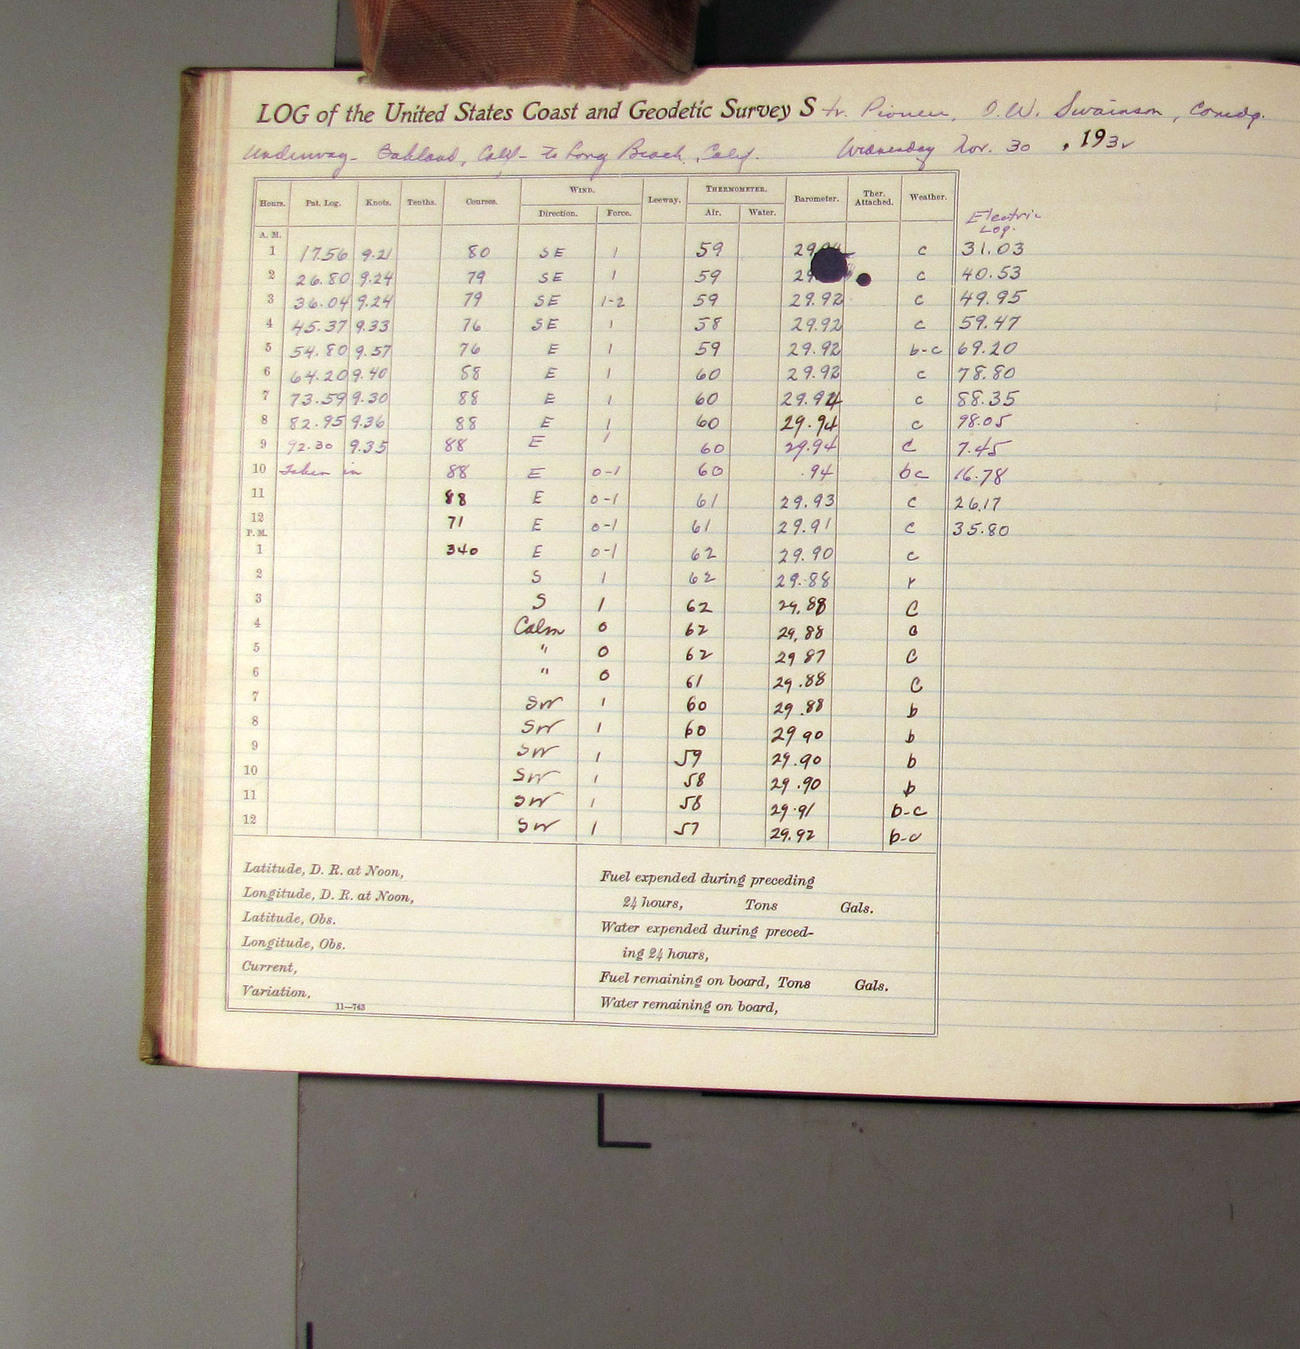 LOG of the United States Coast and Geodetic Survey Str. Pioneer, O.W. Swainson, Comdg.
Underway - Oakland, Calif - to Long Beach, Calif. Wednesday Nov. 30, 1932
Hours. Pat. Log. Knots. Tenths. Courses. WIND. Direction. Force. Leeway. THERMOMETER. Air. Water. Barometer. Ther. Attached. Weather. Electric Log.
A. M.
1 17.56 9.21 80 SE 1 59 29. c 31.03
2 26.80 9.24 79 SE 1 59 29 c 40.53
3 36.04 9.24 79 SE 1-2 59 29.92 c 49.95
4 45.37 9.33 76 SE 1 58 29.92 c 59.47
5 54.80 9.57 76 E 1 59 29.92 b-c 69.20
6 64.20 9.40 88 E 1 60 29.92 c 78.80
7 73.59 9.30 88 E 1 60 29.94 c 88.35
8 82.95 9.36 88 E 1 60 29.94 c 98.05
9 92.30 9.35 88 E 1 60 29.94 c 7.45
10 Taken in 88 E 0-1 60 .94 bc 16.78
11 88 E 0-1 61 29.93 c 26.17
12 71 E 0-1 61 29.91 c 35.80
P. M.
1 340 E 0-1 62 29.90 c
2 S 1 62 29.88 r
3 S 1 62 29.88 C
4 Calm 0 62 29.88 C
5 " 0 62 29 87 C
6 " 0 61 29.88 C
7 SW 1 60 29.88 b
8 SW 1 60 29 90 b
9 SW 1 59 29.90 b
10 SW 1 58 29.90 b
11 SW 1 58 29.91 b-c
12 SW 1 57 29.92 b-c
Latitude, D. R. at Noon,
Longitude, D. R. at Noon,
Latitude, Obs.
Longitude, Obs.
Current,
Variation,
11—743
Fuel expended during preceding
24 hours, Tons Gals.
Water expended during preced-
ing 24 hours,
Fuel remaining on board, Tons Gals.
Water remaining on board,